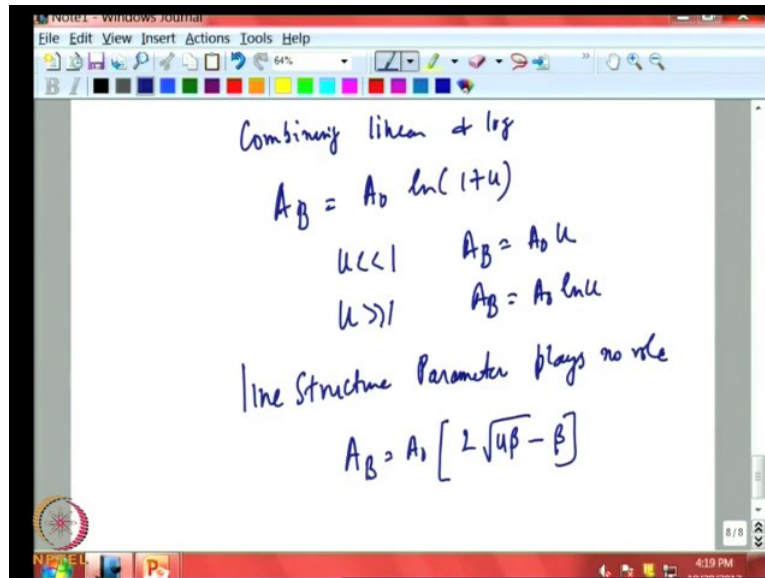 Note1 - Windows Journal
File Edit View Insert Actions Tools Help
64%
B I
Combining linear & log
A_B = A_0 ln(1+u)
u<<1 A_B = A_0 u
u>>1 A_B = A_0 ln u
line Structure Parameter plays no role
A_B = A_0 [2√uβ - β]
8/8
NPTEL
4:19 PM